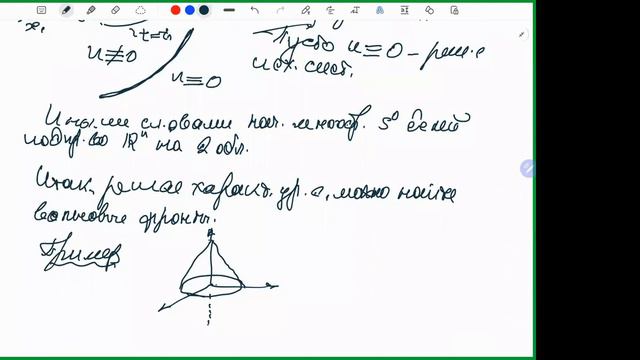 u≢0
u≡0
Пусть u≡0 – реш-е
исх. сист.
Иными словами нач. многооб. S⁰ делит
подпр-во ℝⁿ на 2 обл.
Итак, решая характ. ур-е, можно найти
волновые фронты.
Пример